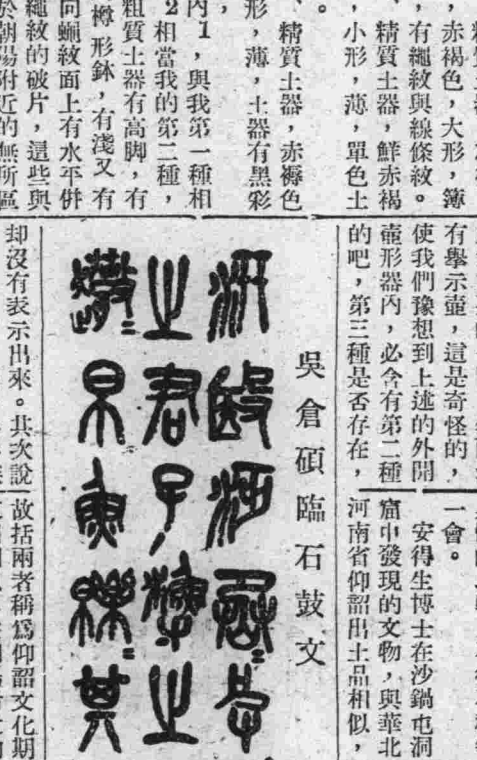 ,赤褐色,大形,簿
,有繩紋與線條紋。
精質土器,鮮赤褐
,小形,薄,單色土
。
精質土器,赤褥色
形,薄,土器有黑彩
,
內1,與我第一種相
2相當我的第二種,
粗質土器有高脚,有
樽形鉢,有淺又有
向蝋紋面上有水平併
繩紋的破片,這些與
於朝陽附近的無所區
有舉示壺,這是奇怪的,
使我們豫想到上述的外開
壺形器內,必含有第二種
的吧,第三種是否存在,
一會。
安得生博士在沙鍋屯洞
窟中發現的文物,與華北
河南省仰韶出土品相似,
吳倉碩臨石鼓文
汧殹沔
之君子漁之
帛魚皪其
却沒有表示出來。其次說
故括兩者稱爲仰韶文化期